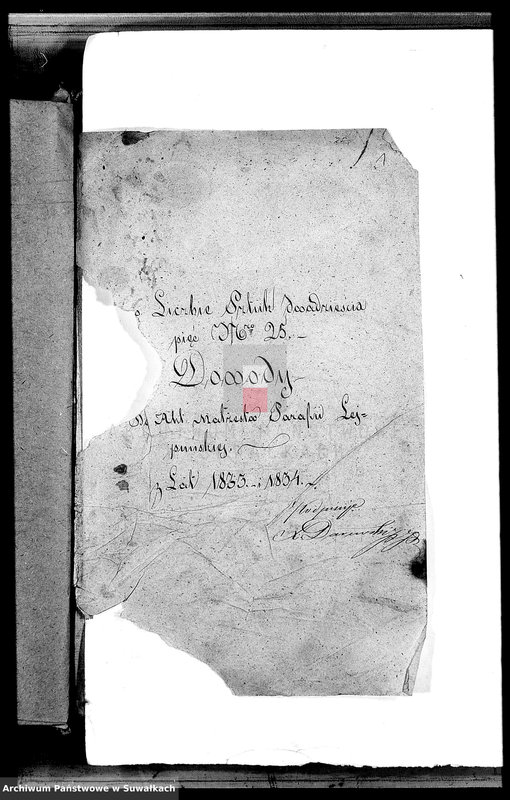 1
o Liczbie Sztuk dwadzieścia
pięć Nro 25.
Dowody
do Akt Małżestw Parafii Lej=
puńskiej.
z Lat 1833. i 1834.
Archiwum Państwowe w Suwałkach